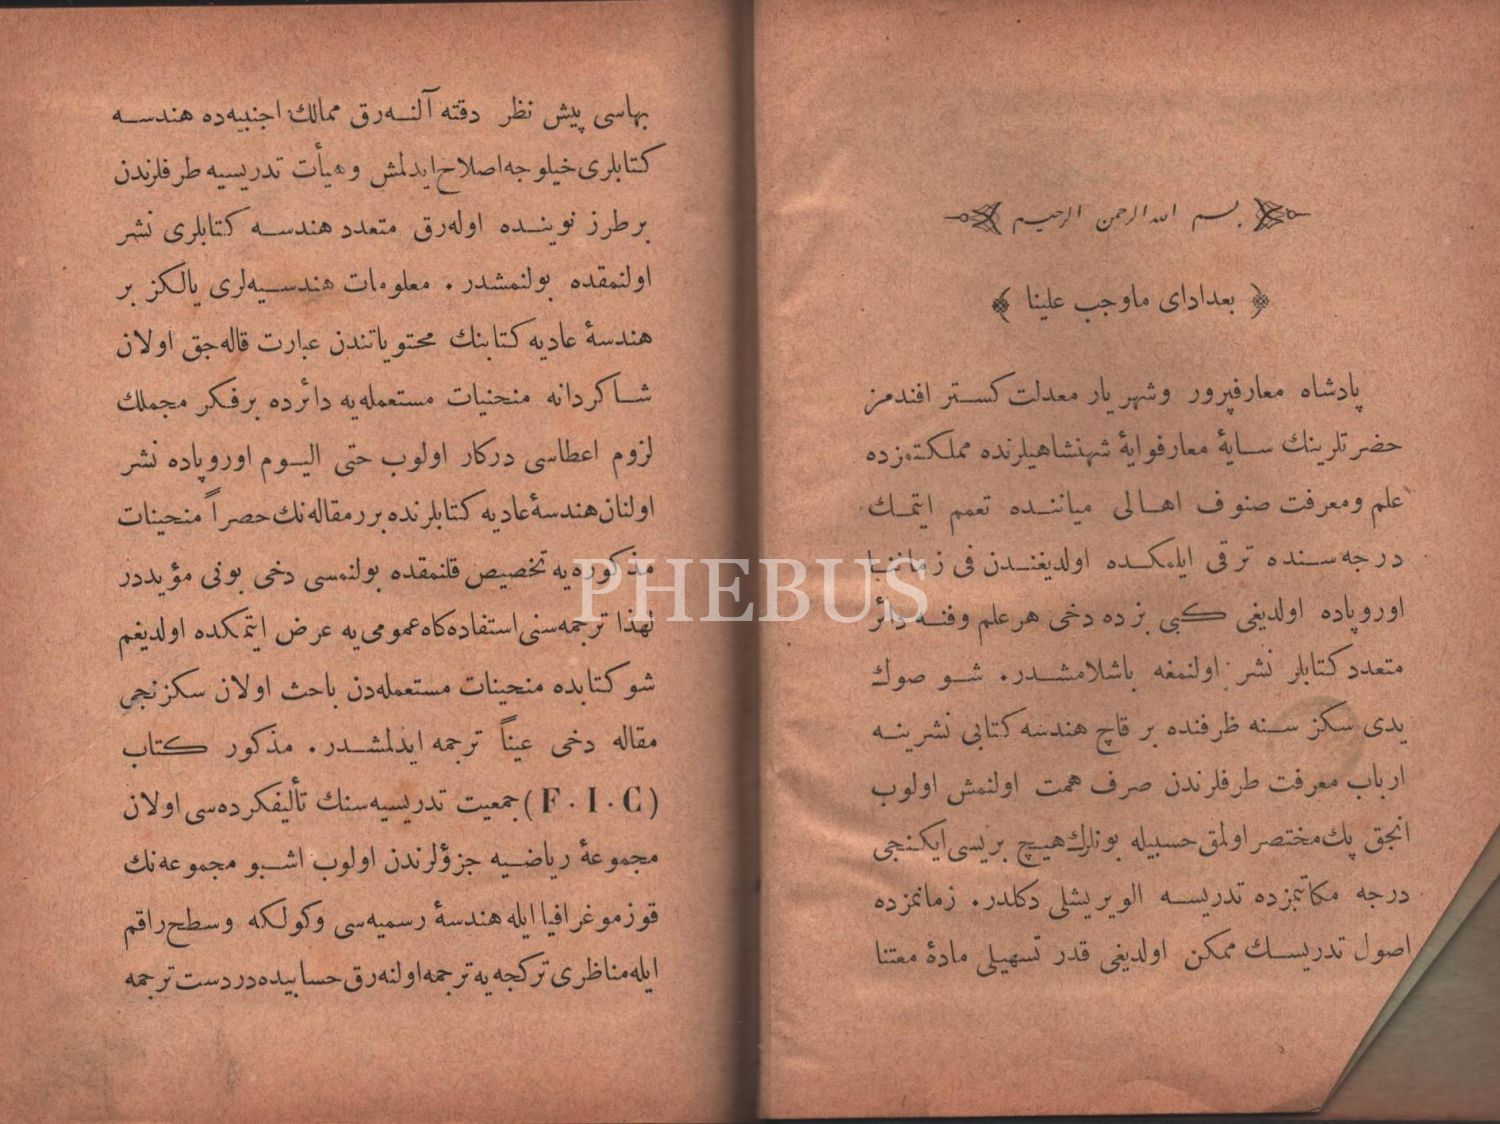 بسم الله الرحمن الرحيم
﴿ بعدادای ماوجب علینا ﴾
پادشاه معارفپرور وشهریار معدلت گستر افندمز
حضرتلرینك سایۀ معارفوایۀ شهنشاهیلرنده مملکتمزده
علم ومعرفت صنوف اهالی میاننده تعمم ایتمك
درجه‌سنده ترقی ایلمکده اولدیغندن فی زماننا
اوروپاده اولدیغی کبی بزده دخی هر علم وفنه دائر
متعدد کتابلر نشر اولنمغه باشلامشدر. شو صوك
یدی سکز سنه ظرفنده بر قاچ هندسه کتابی نشرینه
ارباب معرفت طرفلرندن صرف همت اولنمش اولوب
انجق پك مختصر اولمق حسبیله بونلرك هیچ بریسی ایکنجی
درجه مکاتبمزده تدریسه الویریشلی دکلدر. زمانمزده
اصول تدریسك ممکن اولدیغی قدر تسهیلی مادۀ معتنا
بهاسی پیش نظر دقته آلنه‌رق ممالك اجنبیه‌ده هندسه
کتابلری خیلوجه اصلاح ایدلمش وهیأت تدریسیه طرفلرندن
بر طرز نوینده اوله‌رق متعدد هندسه کتابلری نشر
اولنمقده بولنمشدر. معلومات هندسیه‌لری یالکز بر
هندسۀ عادیه کتابنك محتویاتندن عبارت قاله‌جق اولان
شاکردانه منحنیات مستعمله‌یه دائرده بر فکر مجملك
لزوم اعطاسی درکار اولوب حتی الیوم اوروپاده نشر
اولنان هندسۀ عادیه کتابلرنده برر مقاله‌نك حصراً منحنیات
مذکوره‌یه تخصیص قلنمقده بولنمسی دخی بونی مؤیددر
لهذا ترجمه‌سنی استفاده‌کاه عمومی‌یه عرض ایتمکده اولدیغم
شو کتابده منحنیات مستعمله‌دن باحث اولان سکزنجی
مقاله دخی عیناً ترجمه ایدلمشدر. مذکور کتاب
(F.I.C) جمعیت تدریسیه‌سنك تألیفکرده‌سی اولان
مجموعۀ ریاضیه جزؤلرندن اولوب اشبو مجموعه‌نك
قوزموغرافیا ایله هندسۀ رسمیه‌سی وکولکه وسطح راقم
ایله مناظری ترکجه‌یه ترجمه اولنه‌رق حسابیده دردست ترجمه
PHEBUS